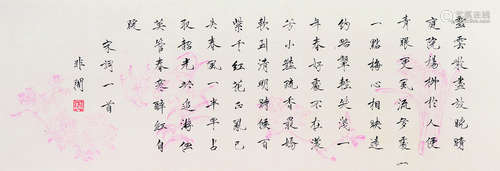 雪雲散盡放曉晴
庭院楊柳於人便
青眼更風流多處
一點梅心相映遠
約略顰輕笑淺一
年春好處不在濃
芳小豔疏香最嬌
軟到清明時候百
紫千紅花正亂已
失春風一半早占
取韶光共追游但
莫管春寒醉紅自
暖
宋詞一首
非闇